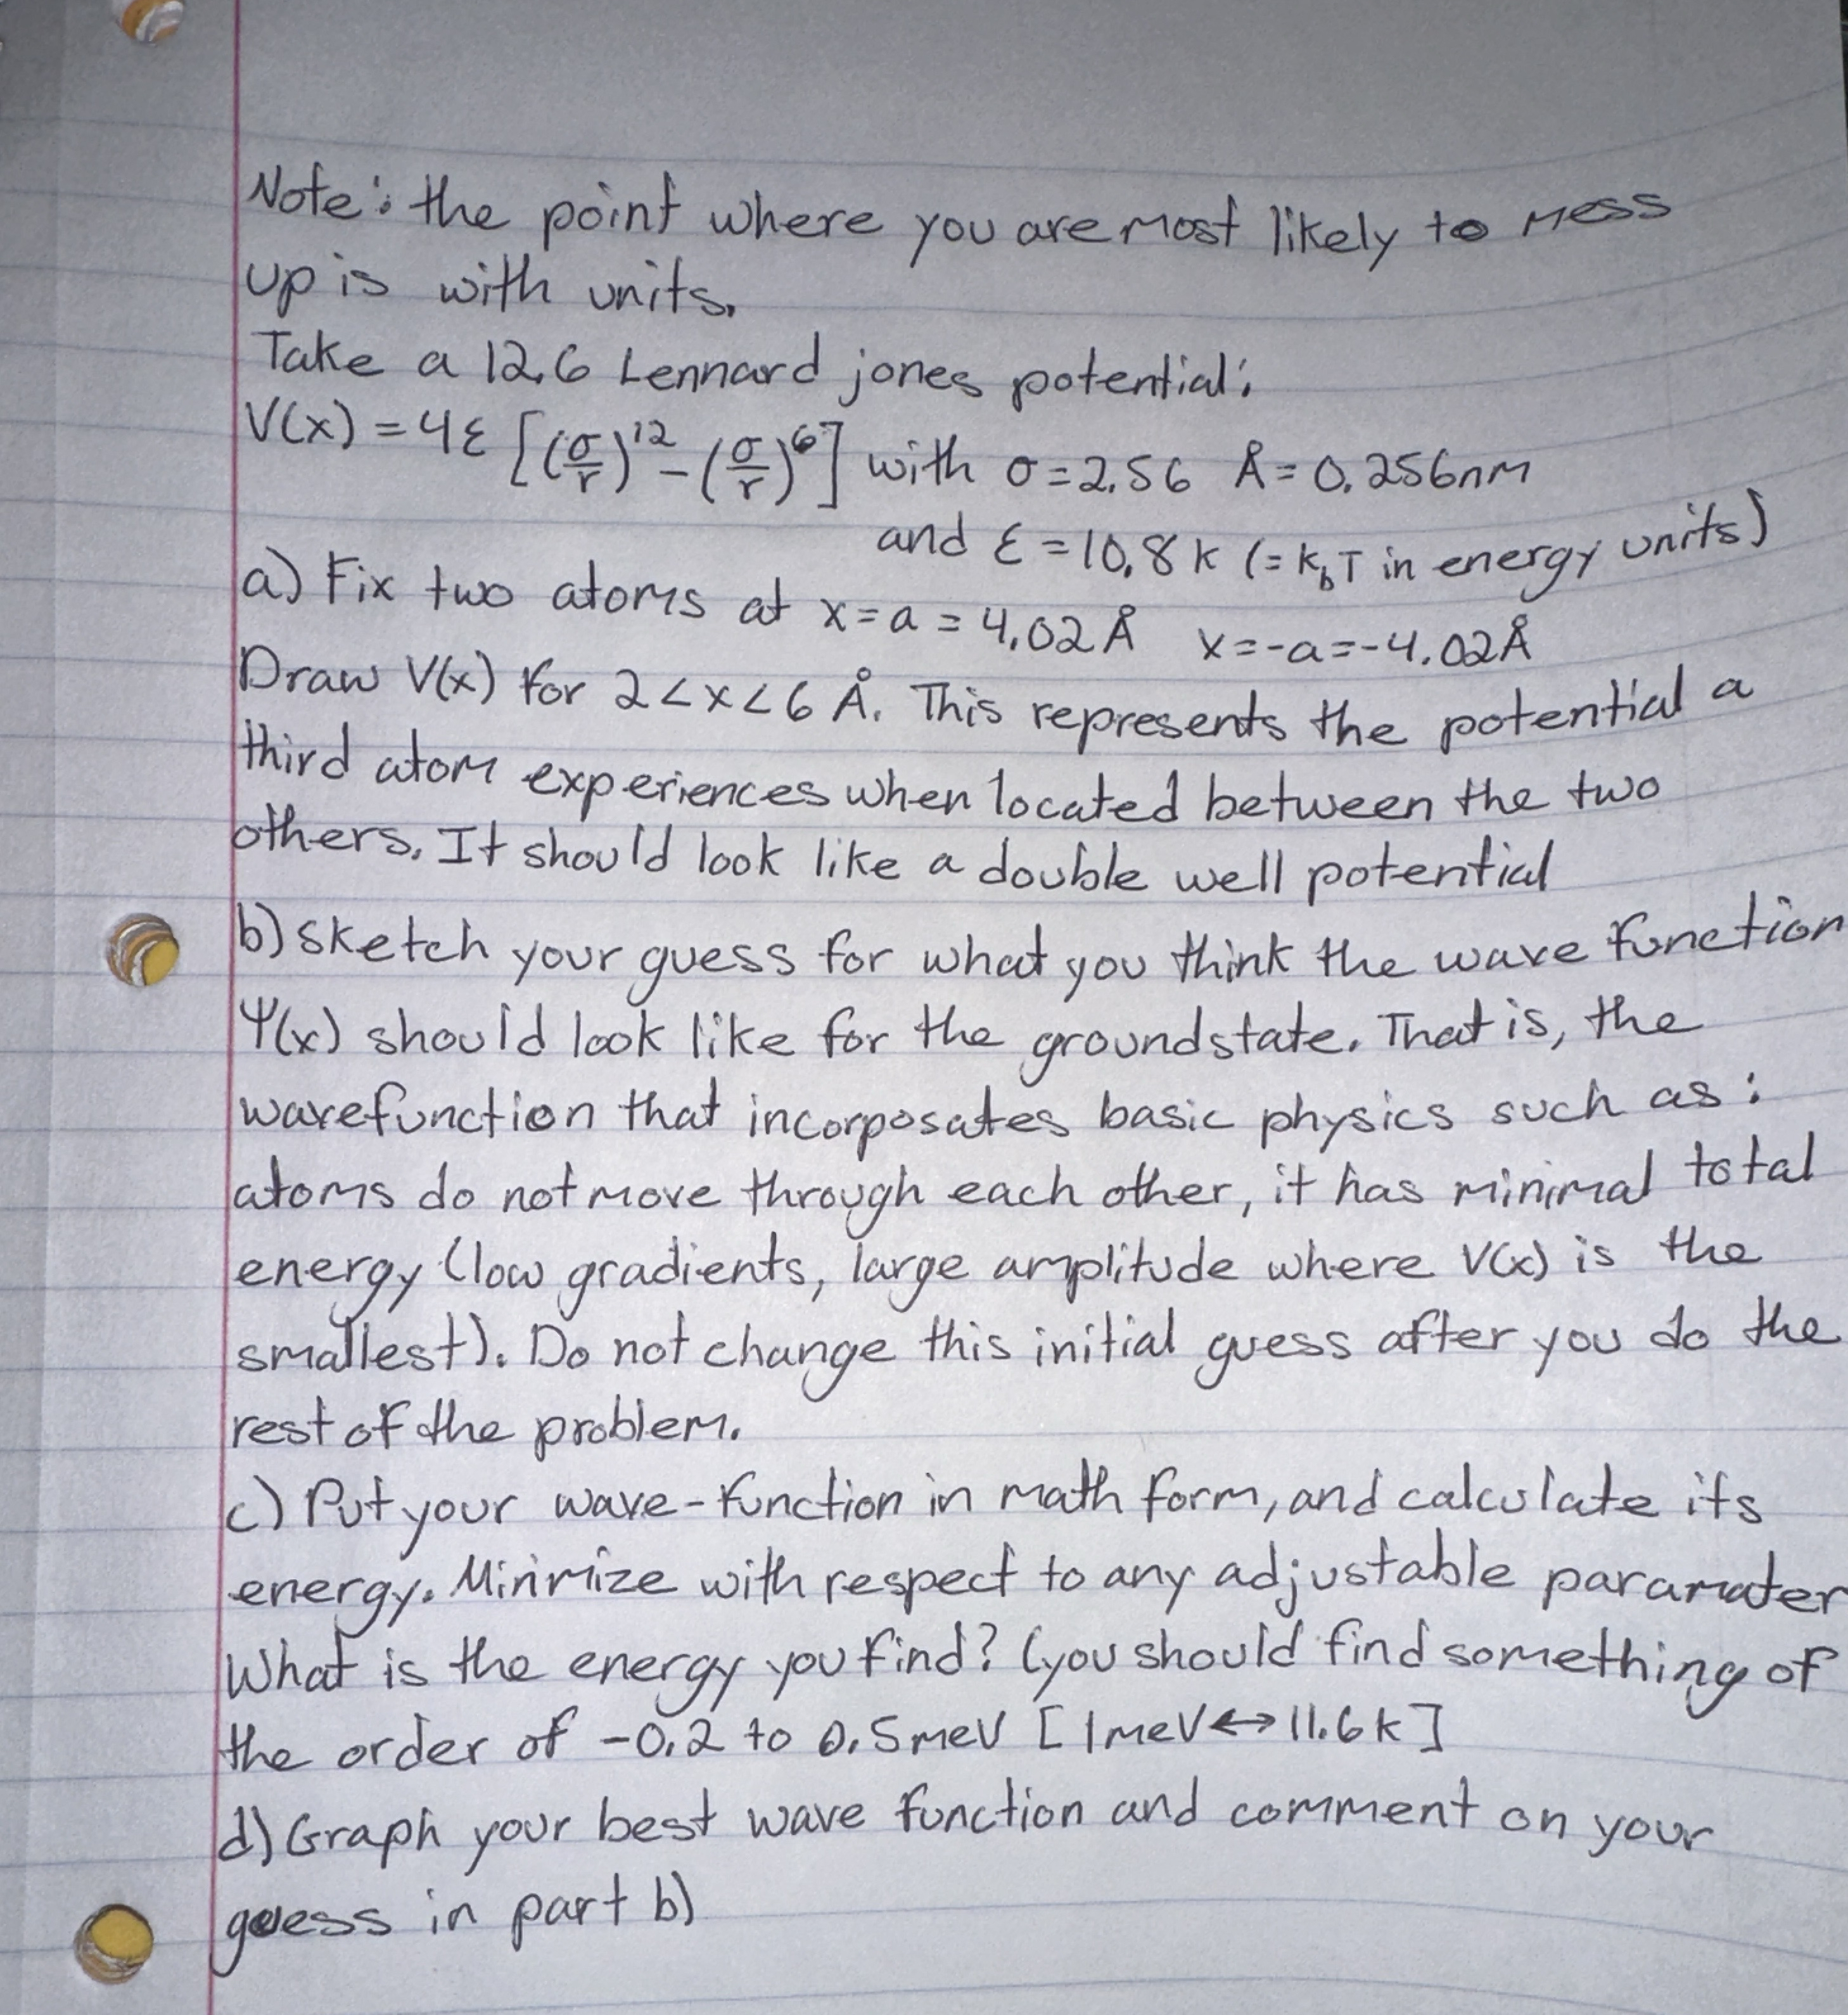 Note: the point where you are most likely to mess
up is with units.
Take a 12,6 Lennard jones potential:
V(x) = 4ε [(σ/r)^12 - (σ/r)^6] with σ = 2.56 Å = 0.256nm
and ε = 10.8 k (= k_b T in energy units)
a) Fix two atoms at x = a = 4.02 Å x = -a = -4.02 Å
Draw V(x) for 2 < x < 6 Å. This represents the potential a
third atom experiences when located between the two
others. It should look like a double well potential
b) sketch your guess for what you think the wave function
Ψ(x) should look like for the groundstate. That is, the
wavefunction that incorposates basic physics such as:
atoms do not move through each other, it has minimal total
energy (low gradients, large amplitude where V(x) is the
smallest). Do not change this initial guess after you do the
rest of the problem.
c) Put your wave-function in math form, and calculate its
energy. Minimize with respect to any adjustable paramater
What is the energy you find? (you should find something of
the order of -0.2 to 0.5meV [1meV↔11.6k]
d) Graph your best wave function and comment on your
guess in part b)